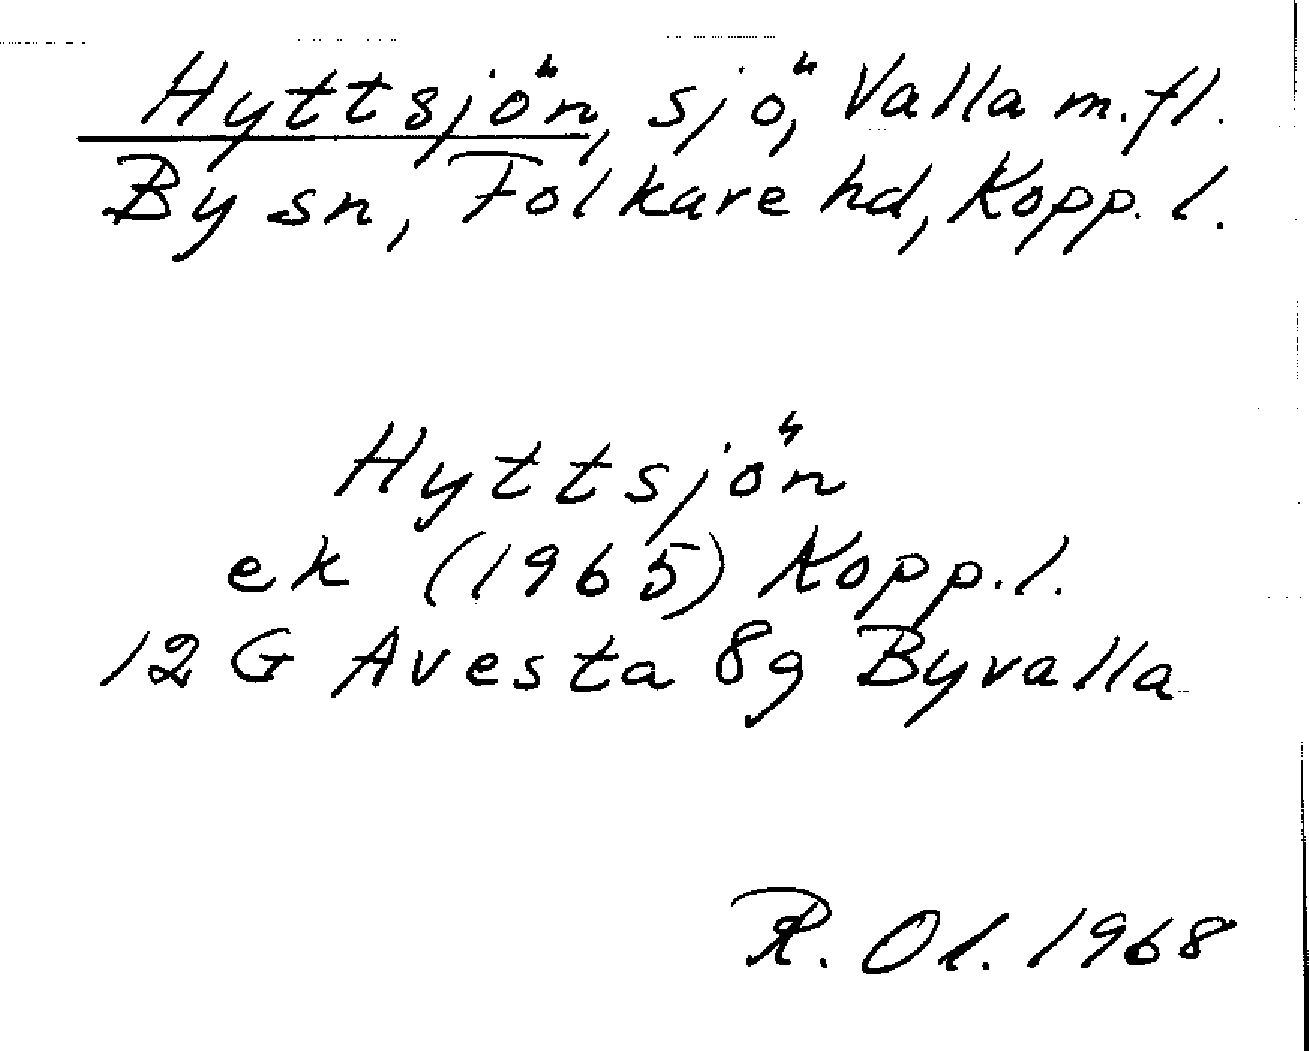 Hyttsjön, sjö, Valla m.fl.
By sn, Folkare hd, Kopp. l.
Hyttsjön
ek (1965) Kopp. l.
12 G Avesta 8g Byvalla
R. Ol. 1968